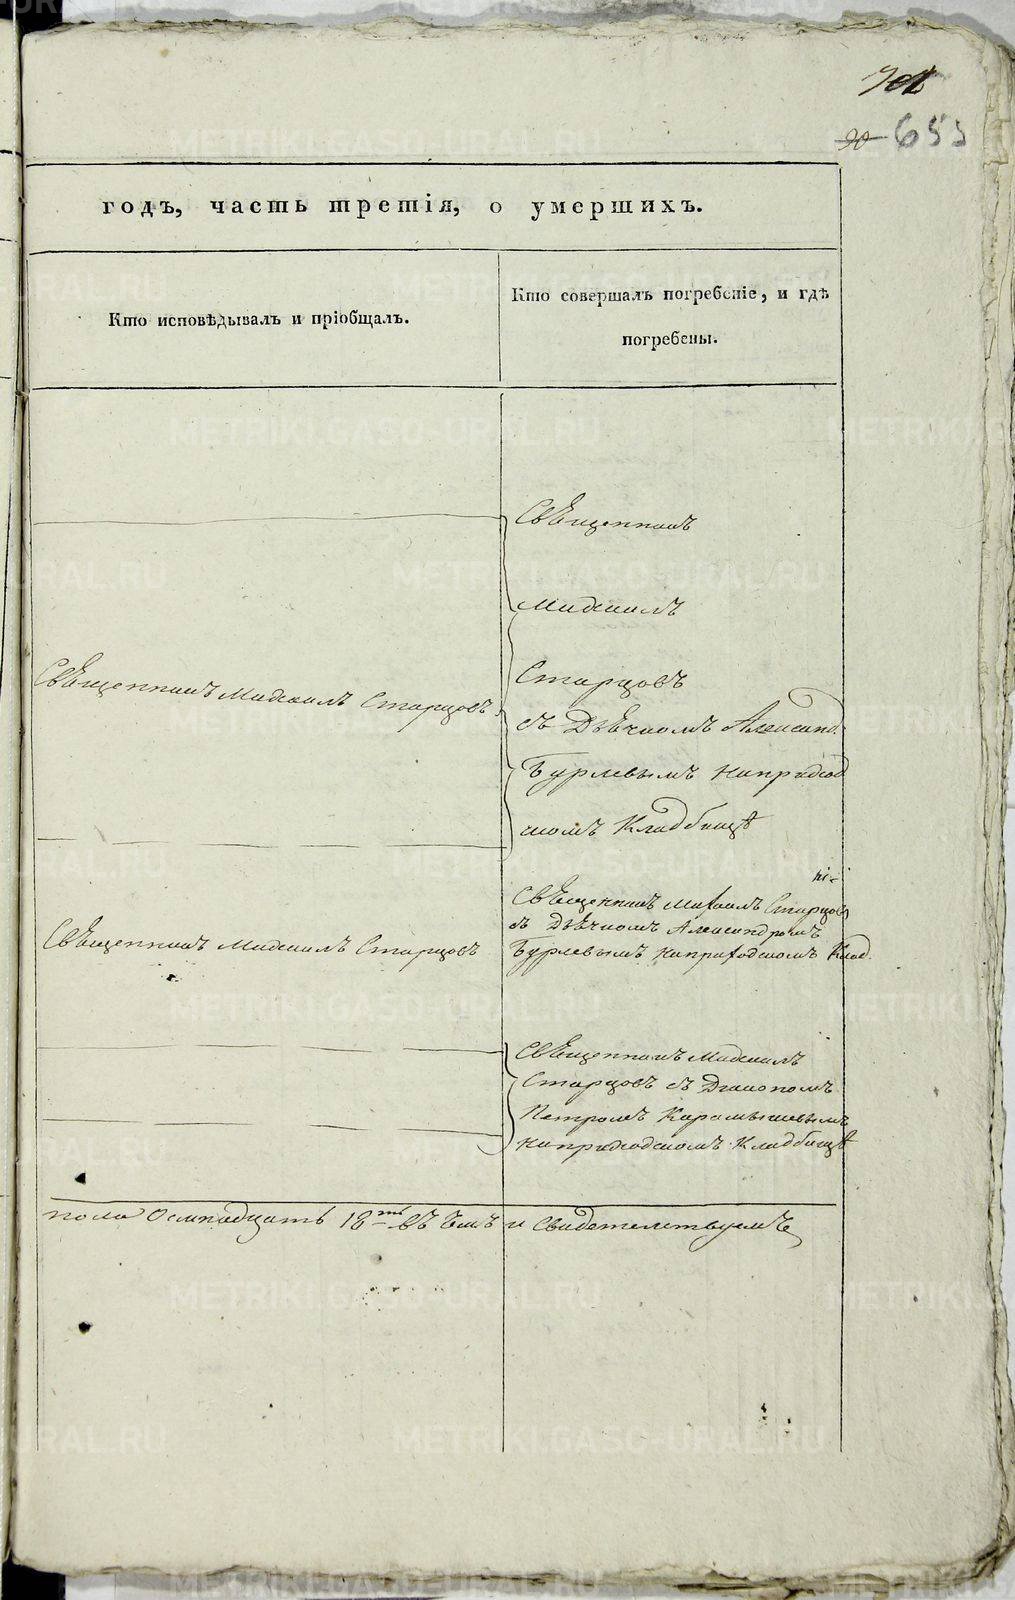 90 655
годъ, часть третія, о умершихъ.
Кто исповѣдывалъ и пріобщалъ.
Кто совершалъ погребеніе, и гдѣ
погребены.
Священникъ
Михаилъ
Священникъ Михаилъ Старцовъ
Старцовъ
съ Дьячкомъ Александ.
Бурлевымъ наприход
скомъ Кладбищѣ
Священникъ Михаилъ Старцовъ
Священникъ Михаилъ Старцовъ
съ Дьячкомъ Александромъ
Бурлевымъ наприходскомъ Клад.
Священникъ Михаилъ
Старцовъ съ Диакономъ
Петромъ Карамышевымъ
наприходскомъ Кладбищѣ
пола Осмнадцать 18ть въ чемъ и свидетельствуемъ
METRIKI.GASO-URAL.RU